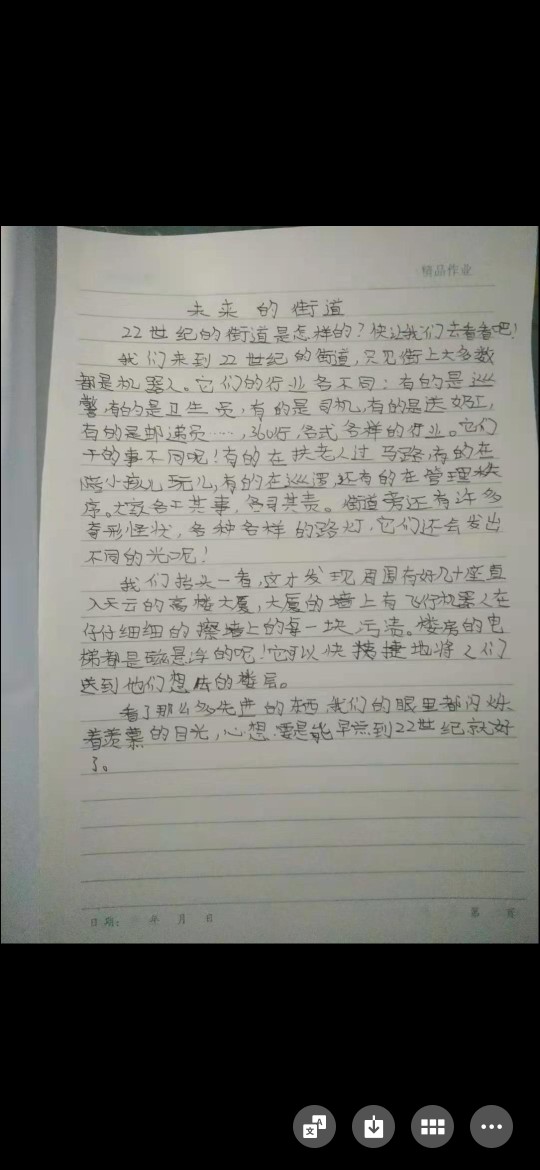 精品作业
未来的街道
22世纪的街道是怎样的？快让我们去看看吧！
我们来到22世纪的街道，只见街上大多数
都是机器人。它们的行业各不同：有的是巡
警，有的是卫生员，有的是司机，有的是送奶工，
有的是邮递员……，360行，各式各样的行业。它们
干的事不同呢！有的在扶老人过马路，有的在
陪小孩儿玩儿，有的在巡逻，还有的在管理秩
序。大家各工其事，各司其责。街道旁还有许多
奇形怪状，各种各样的路灯，它们还会发出
不同的光呢！
我们抬头一看，这才发现周围有好几十座直
入天云的高楼大厦，大厦的墙上有飞行机器人在
仔仔细细的擦墙上的每一块污渍。楼房的电
梯都是磁悬浮的呢！它可以快捷地将人们
送到他们想去的楼层。
看了那么多先进的东西，我们的眼里都闪烁
着羡慕的目光，心想：要是能早点到22世纪就好
了。
日期： 年 月 日 第 页